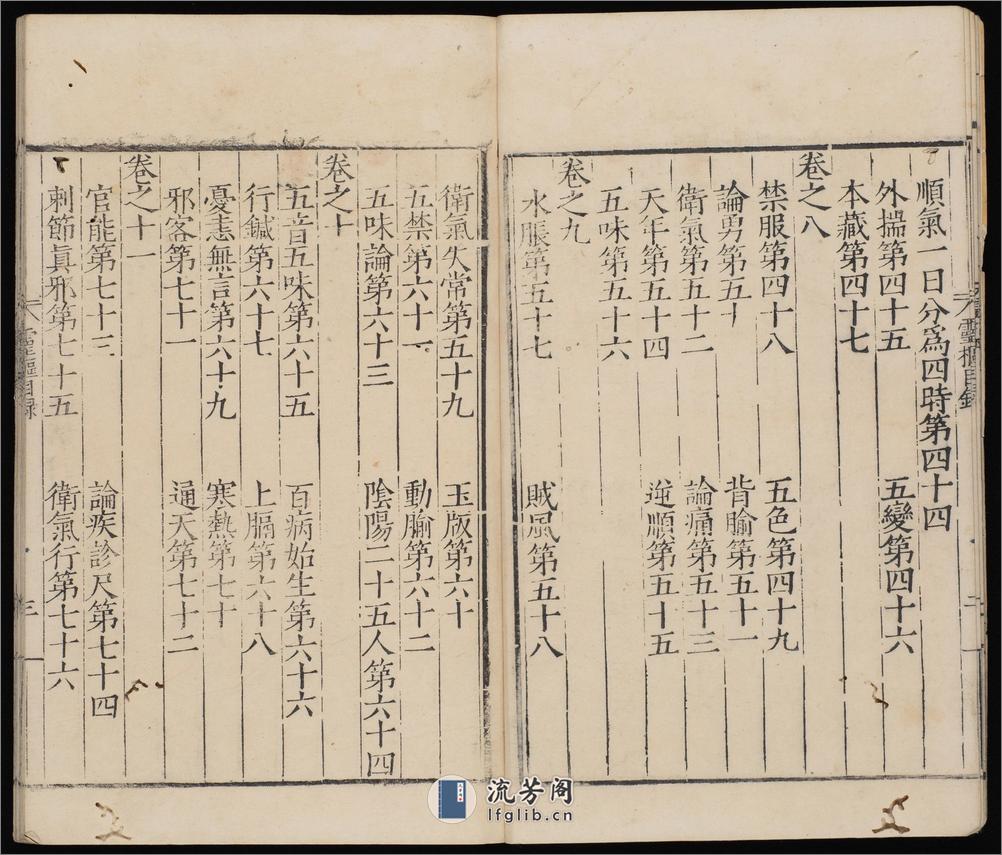 順氣一日分爲四時第四十四
外揣第四十五 五變第四十六
本藏第四十七
卷之八
禁服第四十八 五色第四十九
論勇第五十 背腧第五十一
衛氣第五十二 論痛第五十三
天年第五十四 逆順第五十五
五味第五十六
卷之九
水脹第五十七 賊風第五十八
衛氣失常第五十九 玉版第六十
五禁第六十一 動腧第六十二
五味論第六十三 陰陽二十五人第六十四
卷之十
五音五味第六十五 百病始生第六十六
行鍼第六十七 上膈第六十八
憂恚無言第六十九 寒熱第七十
邪客第七十一 通天第七十二
卷之十一
官能第七十三 論疾診尺第七十四
刺節眞邪第七十五 衛氣行第七十六
靈樞目録 二
靈樞目録 三
流芳阁
lfglib.cn